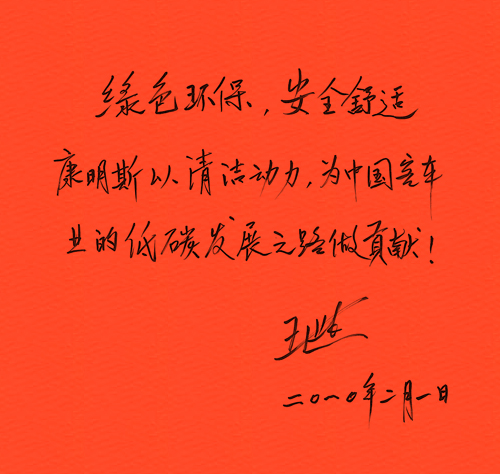 绿色环保，安全舒适
康明斯以清洁动力，为中国客车
业的低碳发展之路做贡献！
二〇一〇年二月一日